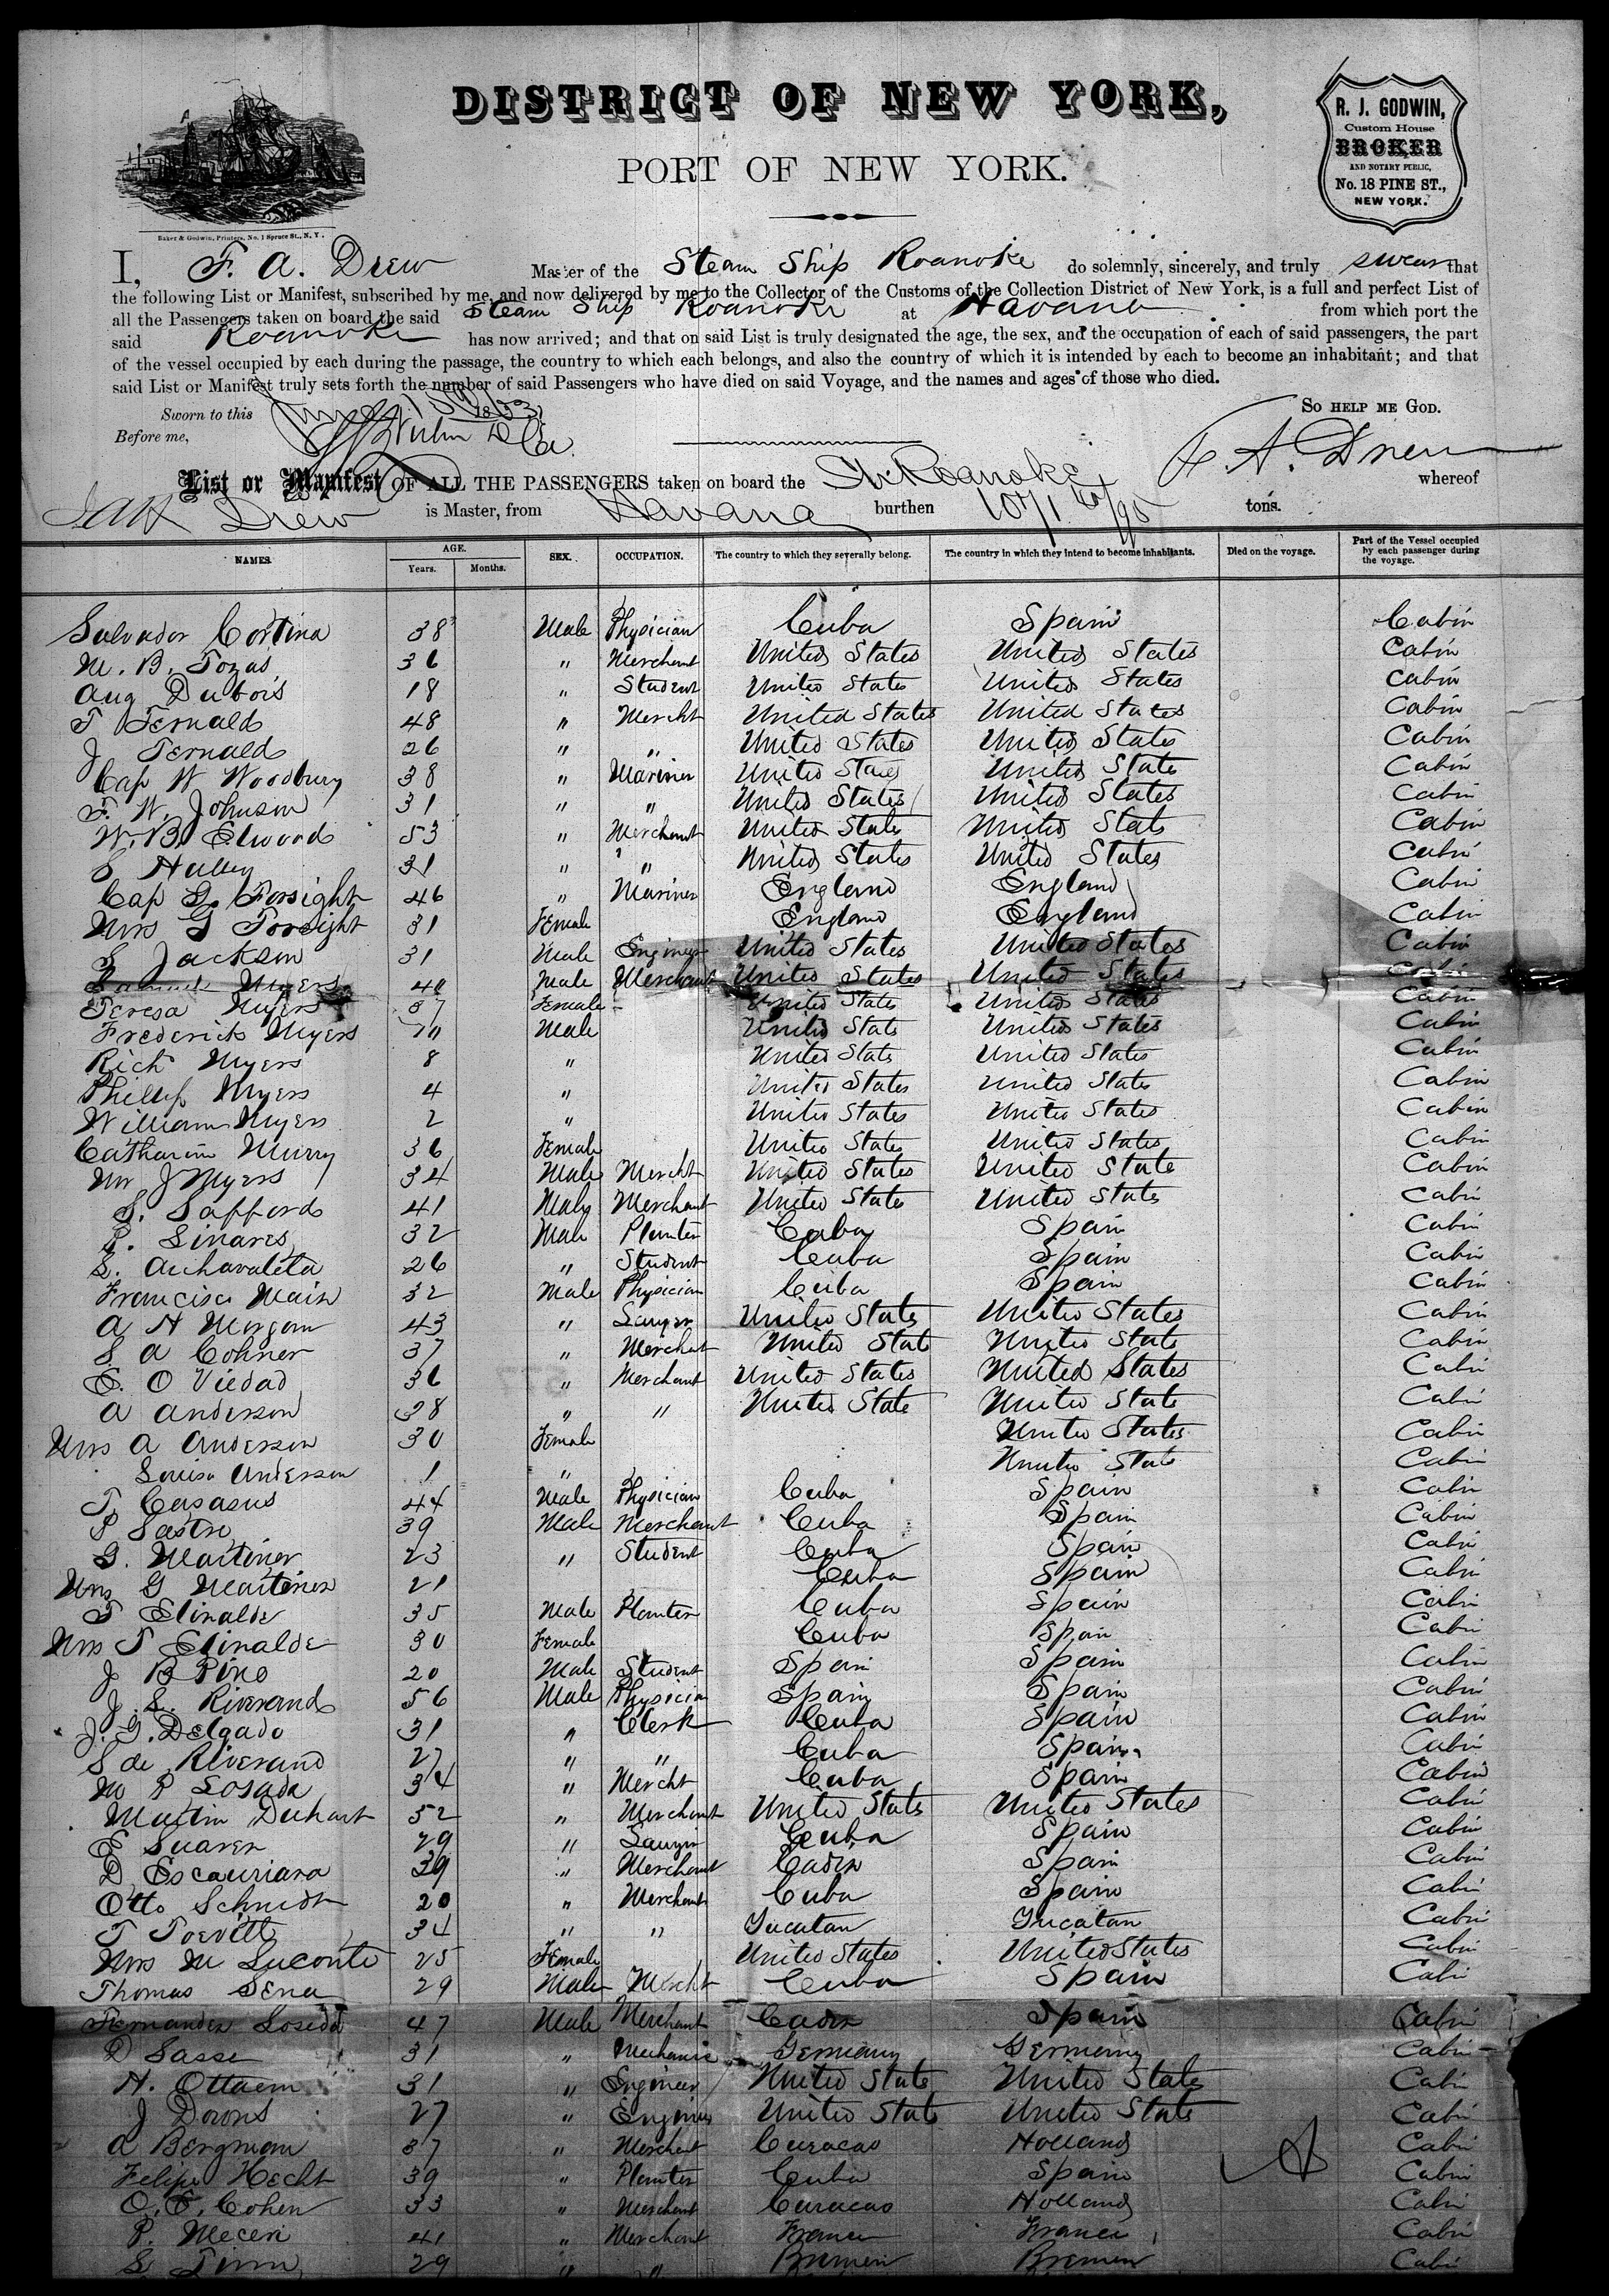 DISTRICT OF NEW YORK,
PORT OF NEW YORK.
R. J. GODWIN,
Custom House
BROKER
AND NOTARY PUBLIC,
No. 18 PINE ST.,
NEW YORK.
Baker & Godwin, Printers, No. 1 Spruce St., N. Y.
I, F. A. Drew Master of the Steam Ship Roanoke do solemnly, sincerely, and truly swear that
the following List or Manifest, subscribed by me, and now delivered by me to the Collector of the Customs of the Collection District of New York, is a full and perfect List of
all the Passengers taken on board the said Steam Ship Roanoke at Havana from which port the
said Roanoke has now arrived; and that on said List is truly designated the age, the sex, and the occupation of each of said passengers, the part
of the vessel occupied by each during the passage, the country to which each belongs, and also the country of which it is intended by each to become an inhabitant; and that
said List or Manifest truly sets forth the number of said Passengers who have died on said Voyage, and the names and ages of those who died.
Sworn to this
So help me God.
Before me,
F. A. Drew
List or Manifest OF ALL THE PASSENGERS taken on board the Str Roanoke whereof
Drew is Master, from Havana burthen 1071 tons.
NAMES. AGE. Years. Months. SEX. OCCUPATION. The country to which they severally belong. The country in which they intend to become inhabitants. Died on the voyage. Part of the Vessel occupied by each passenger during the voyage.
Salvador Cortina 38 Male Physician Cuba Spain Cabin
M. B. Tozas 36 " Merchant United States United States Cabin
Aug Dubois 18 " Student United States United States Cabin
T Fernald 48 " Mercht United States United States Cabin
J Fernald 26 " " United States United States Cabin
Cap W Woodbury 38 " Mariner United States United State Cabin
F. W. Johnson 31 " " United States United States Cabin
W. B. Elwood 53 " Merchant United State United State Cabin
S Halley 31 " " United States United States Cabin
Cap G. Forsight 46 " Mariner England England Cabin
Mrs G Forsight 31 Female England England Cabin
S Jackson 31 Male Engineer United States United States Cabin
Myers 40 Male Merchant United States United States Cabin
Teresa Myers 37 Female United States United States Cabin
Frederick Myers 10 Male United State United States Cabin
Rich Myers 8 " United State United States Cabin
Phillip Myers 4 " United States United States Cabin
William Myers 2 " United States United States Cabin
Catharine Murry 36 Female United States United States Cabin
Mr J Myers 34 Male Mercht United States United State Cabin
S. Safford 41 Male Merchant United States United State Cabin
P. Linares 32 Male Planter Cuba Spain Cabin
L. Achavaleta 26 " Student Cuba Spain Cabin
Francisco Main 32 Male Physician Cuba Spain Cabin
A H Morgan 43 " Lawyer United States United States Cabin
S A Cohner 37 " Merchant United State United State Cabin
E. O Viedad 36 " Merchant United States United States Cabin
A Anderson 38 " " United State United State Cabin
Mrs A Anderson 30 Female United States Cabin
Louisa Anderson 1 " United State Cabin
T. Casasus 44 Male Physician Cuba Spain Cabin
P Sastre 39 Male Merchant Cuba Spain Cabin
G. Martinez 23 " Student Cuba Spain Cabin
Mrs G Martinez 21 Cuba Spain Cabin
T Elinalde 35 Male Planter Cuba Spain Cabin
Mrs T Elinalde 30 Female Cuba Spain Cabin
J B Pino 20 Male Student Spain Spain Cabin
J. S. Riverand 56 Male Physician Spain Spain Cabin
J. G. Delgado 31 " Clerk Cuba Spain Cabin
S de Riverand 27 " " Cuba Spain Cabin
M P Losada 34 " Mercht Cuba Spain Cabin
Martin Duhart 52 " Merchant United State United States Cabin
E Suarez 29 " Lawyer Cuba Spain Cabin
D Escauriara 39 " Merchant Cadiz Spain Cabin
Otto Schmidt 20 " Merchant Cuba Spain Cabin
T Toevitt 34 " " Yucatan Yucatan Cabin
Mrs M Luconte 25 Female United States United States Cabin
Thomas Sena 29 Male Mercht Cuba Spain Cabin
Fernandez Loseda 47 Male Merchant Cadiz Spain Cabin
D Sasse 31 " Mechanic Germany Germany Cabin
H. Ottaem 31 " Engineer United State United State Cabin
J Downs 27 " Engineer United State United State Cabin
A Bergman 37 " Merchant Curacao Holland Cabin
Felipe Hecht 39 " Planter Cuba Spain Cabin
O. E. Cohen 33 " Merchant Curacao Holland Cabin
P. Meceri 41 " Merchant France France Cabin
S Timm 29 " " Bremen Bremen Cabin